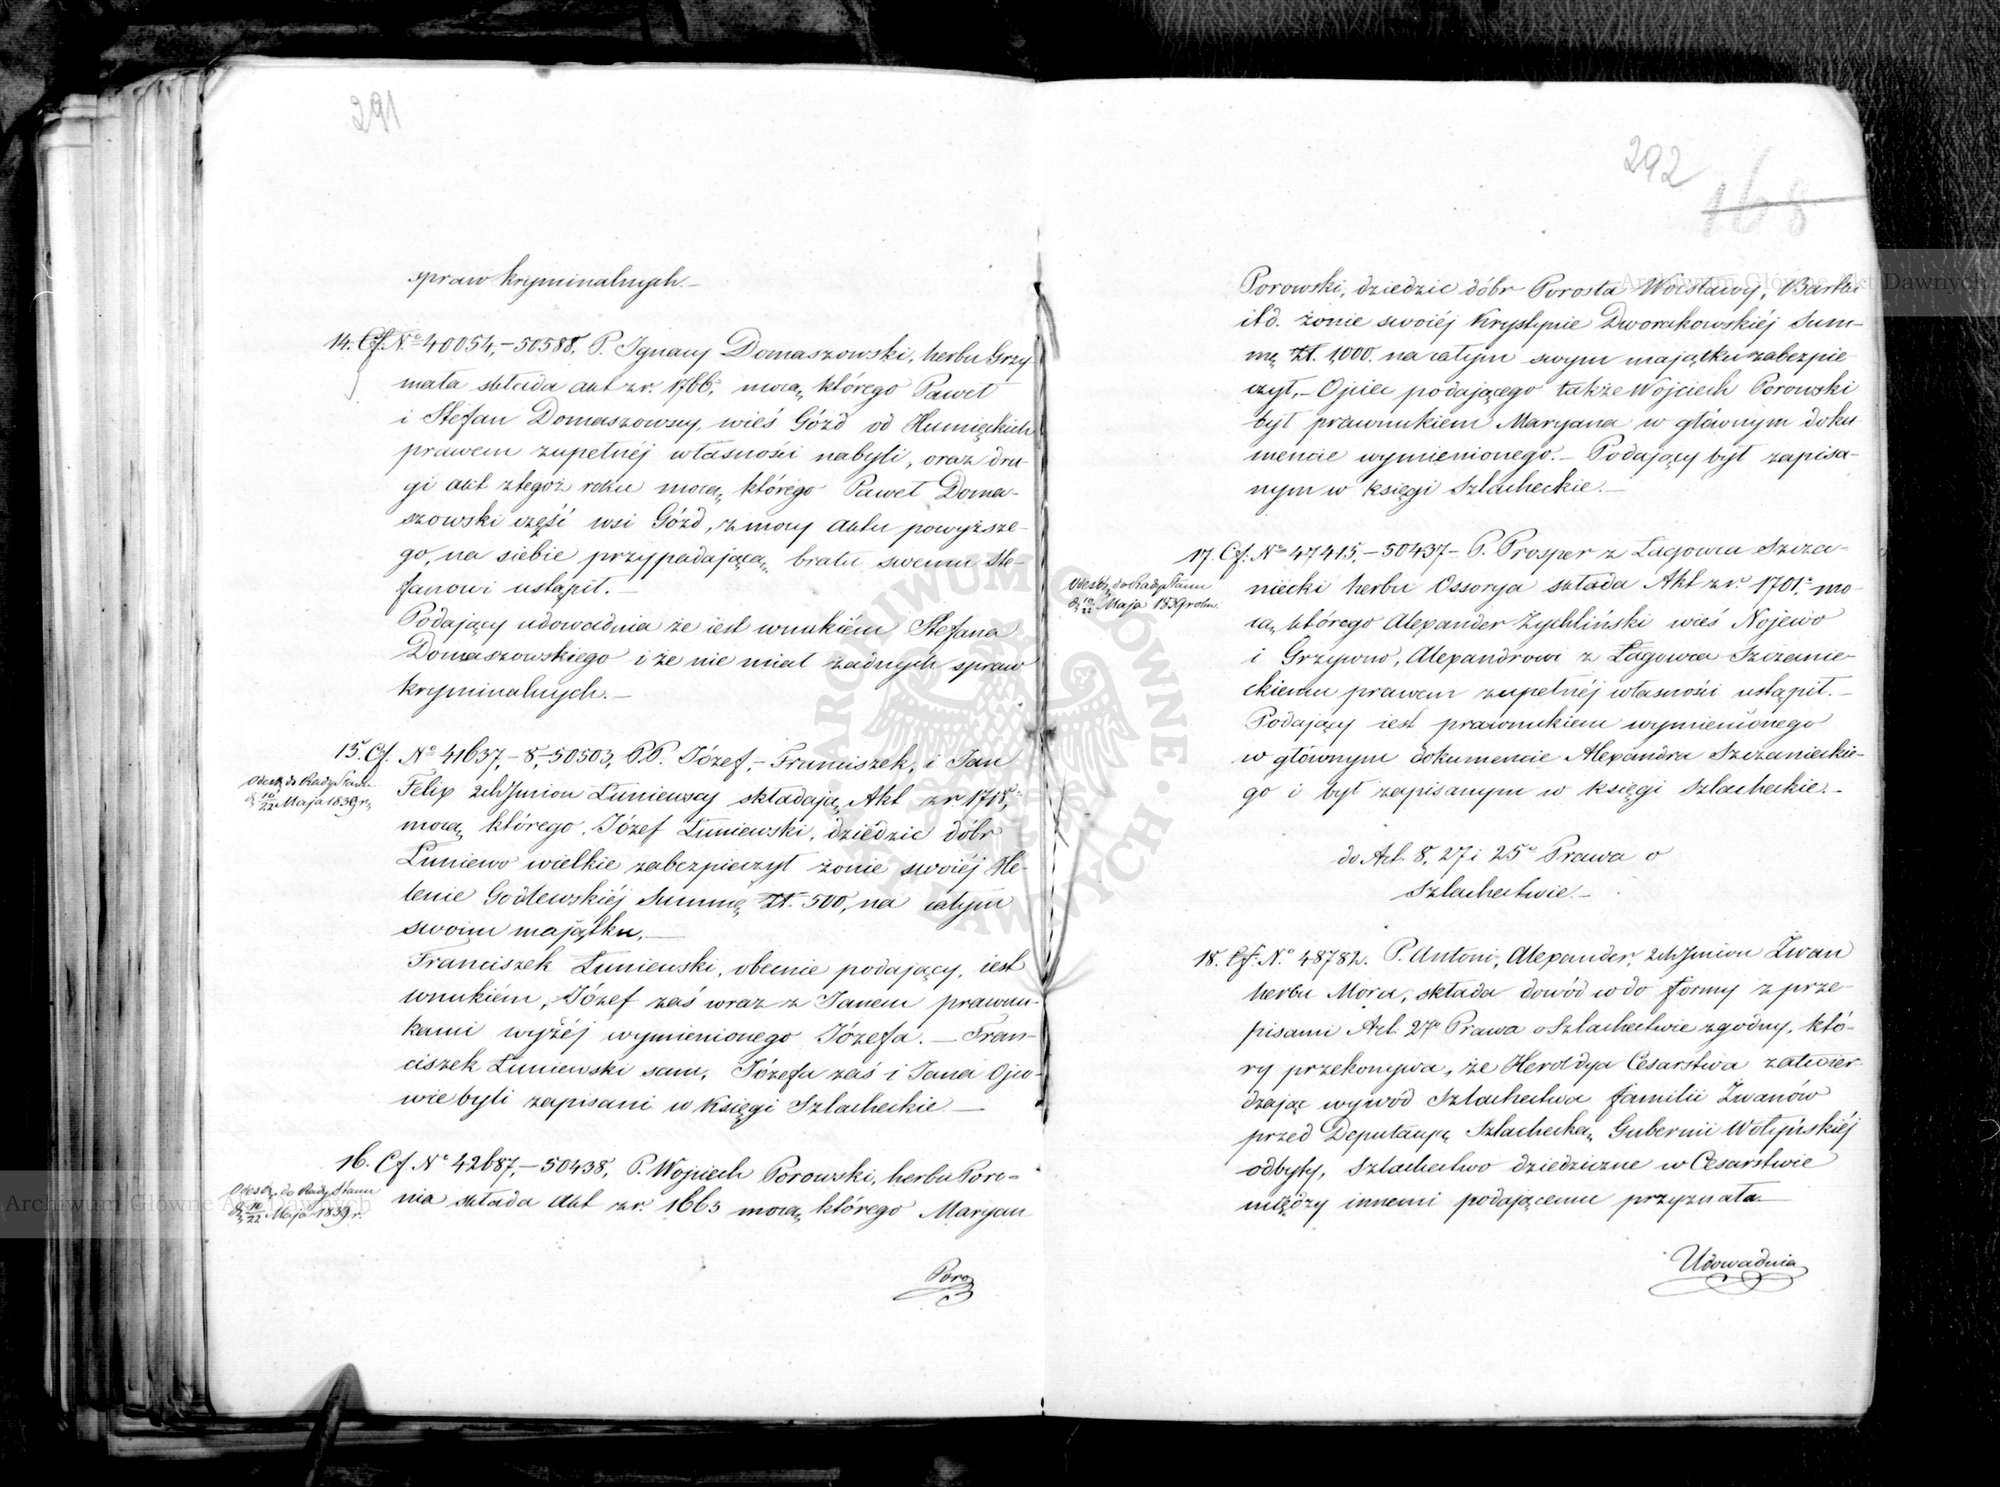 291
spraw kryminalnych.–
14. Cf. No 40054,–50588, P. Ignacy Domaszowski, herbu Grzy-
mała składa akt z r. 1766, mocą którego Paweł
i Stefan Domaszowscy, wieś Gózd od Humięckich
prawem zupełnéj własności nabyli, oraz dru-
gi akt z tegoż roku mocą którego Paweł Doma-
szowski część wsi Gózd, z mocy Aktu powyższe-
go, na siebie przypadającą, bratu swemu Ste-
fanowi ustąpił.–
Podający udowadnia że iest wnukiém Stefana
Domaszowskiego i że nie miał żadnych spraw
kryminalnych.–
15. Cf. No 41637,–8,–50503, P.P. Józef,– Franciszek, i Jan
Odesłz do Rady Stanu
d. 10/22 Maja 1839 r.
Felix 2ch Imion Łuniewscy składają Akt z r. 1718,
mocą którego, Józef Łuniewski, dziedzic dóbr
Łuniewo wielkie zabezpieczył żonie swoiéj He-
lenie Godlewskiéj Summę zł. 500, na całym
swoim majątku.–
Franciszek Łuniewski, obecnie podający, iest
wnukiém, Józef zaś wraz z Janem prawnu-
kami wyżéj wymienionego Józefa.– Fran-
ciszek Łuniewski sam, Józefa zaś i Jana Ojco-
wie byli zapisani w Księgi Szlacheckie.–
16. Cf. No 42687,–50438, P. Wojciech Porowski, herbu Poro-
Odesłz. do Rady Stanu
d. 10/22 Maja 1839 r.
nia składa akt z r. 1663 mocą którego Maryan
Poro
292
168
Porowski, dziedzic dóbr Porosła Wocsławy, Barki
itd. żonie swoiéj Krystynie Dworakowskiéj Sum-
mę zł. 1,000. na całym swym majątku zabezpie-
czył.– Ojciec podającego także Wojciech Porowski
był prawnukiem Maryana w głównym doku
mencie wymienionego.– Podający był zapisa-
nym w księgi Szlacheckie.–
17. Cf. No 47415,–50437– P. Prosper z Łagowca Szcza-
Odesłz. do Rady Stanu
d. 10/22 Maja 1839 roku.
niecki herbu Ossorya składa Akt z r. 1701, mo-
cą którego Alexander Zychliński wieś Nojewo
i Grzywno, Alexandrowi z Łagowca Szczanie-
ckiemu prawem zupełnéj własności ustąpił.–
Podający iest prawnukiem wymienionego
w głównym dokumencie Alexandra Szczanieckie-
go i był zapisanym w księgi Szlacheckie.–
do Art. 8, 27 i 25o Prawa o
Szlachectwie.–
18. Cf. No 48782. P. Antoni, Alexander, 2ch Imion Zwan
herbu Mora, składa dowód co do formy z prze-
pisami Art. 27o Prawa o Szlachectwie zgodny, któ-
ry przekonywa, że Heroldya Cesarstwa zatwier-
dzając wywód Szlachectwa familii Zwanów
przed Deputacyą Szlachecką Gubernii Wołyńskiéj
odbyty, Szlachectwo dziedziczne w Cesarstwie
między innemi podającemu przyznała.–
Udowadnia
Archiwum Główne Akt Dawnych
Archiwum Główne Akt Dawnych
ARCHIWUM GŁÓWNE AKT DAWNYCH